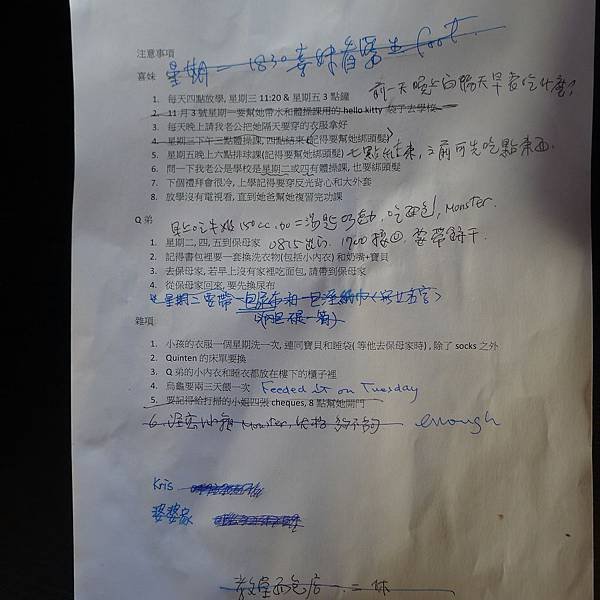 注意事項
星期一 1830 喜妹看醫生 foot.
喜妹
前一天晚上問隔天早餐吃什麼?
1. 每天四點放學, 星期三 11:20 & 星期五 3 點鐘
2. 11 月 3 號星期一要幫她帶水和體操課用的 hello kitty 袋子去學校
3. 每天晚上請我老公把她隔天要穿的衣服拿好
4. 星期三下午三點體操課, 四點結束 (記得要幫她綁頭髮)
5. 星期五晚上六點排球課(記得要幫她綁頭髮) 七點結束, 之前可先吃點東西.
6. 問一下我老公是學校是星期二或四有體操課, 也要綁頭髮
7. 下個禮拜會很冷, 上學記得要穿反光背心和大外套
8. 放學沒有電視看, 直到她爸幫她複習完功課
Q 弟
早上吃牛奶 150cc, 加二湯匙, 吃麵包, Monster.
1. 星期二, 四, 五到保母家 0815 出門 1700 接回, 要帶餅干.
2. 記得書包裡要一套換洗衣物(包括小內衣) 和奶嘴+寶貝
3. 去保母家, 若早上沒有家裡吃面包, 請帶到保母家
4. 從保母家回來, 要先換尿布
星期二要帶一包尿布和一包濕紙巾
雜項
1. 小孩的衣服一個星期洗一次, 連同寶貝和睡袋( 等他去保母家時) , 除了 socks 之外
2. Quinten 的床單要換
3. Q 弟的小內衣和睡衣都放在樓下的櫃子裡
4. 烏龜要兩三天餵一次 Feeded it on Tuesday
5. 要記得給打掃的小姐四張 cheques, 8 點幫她開門
6. Monster, 夠不夠 enough
Kris
婆婆家
麵包店 = 休